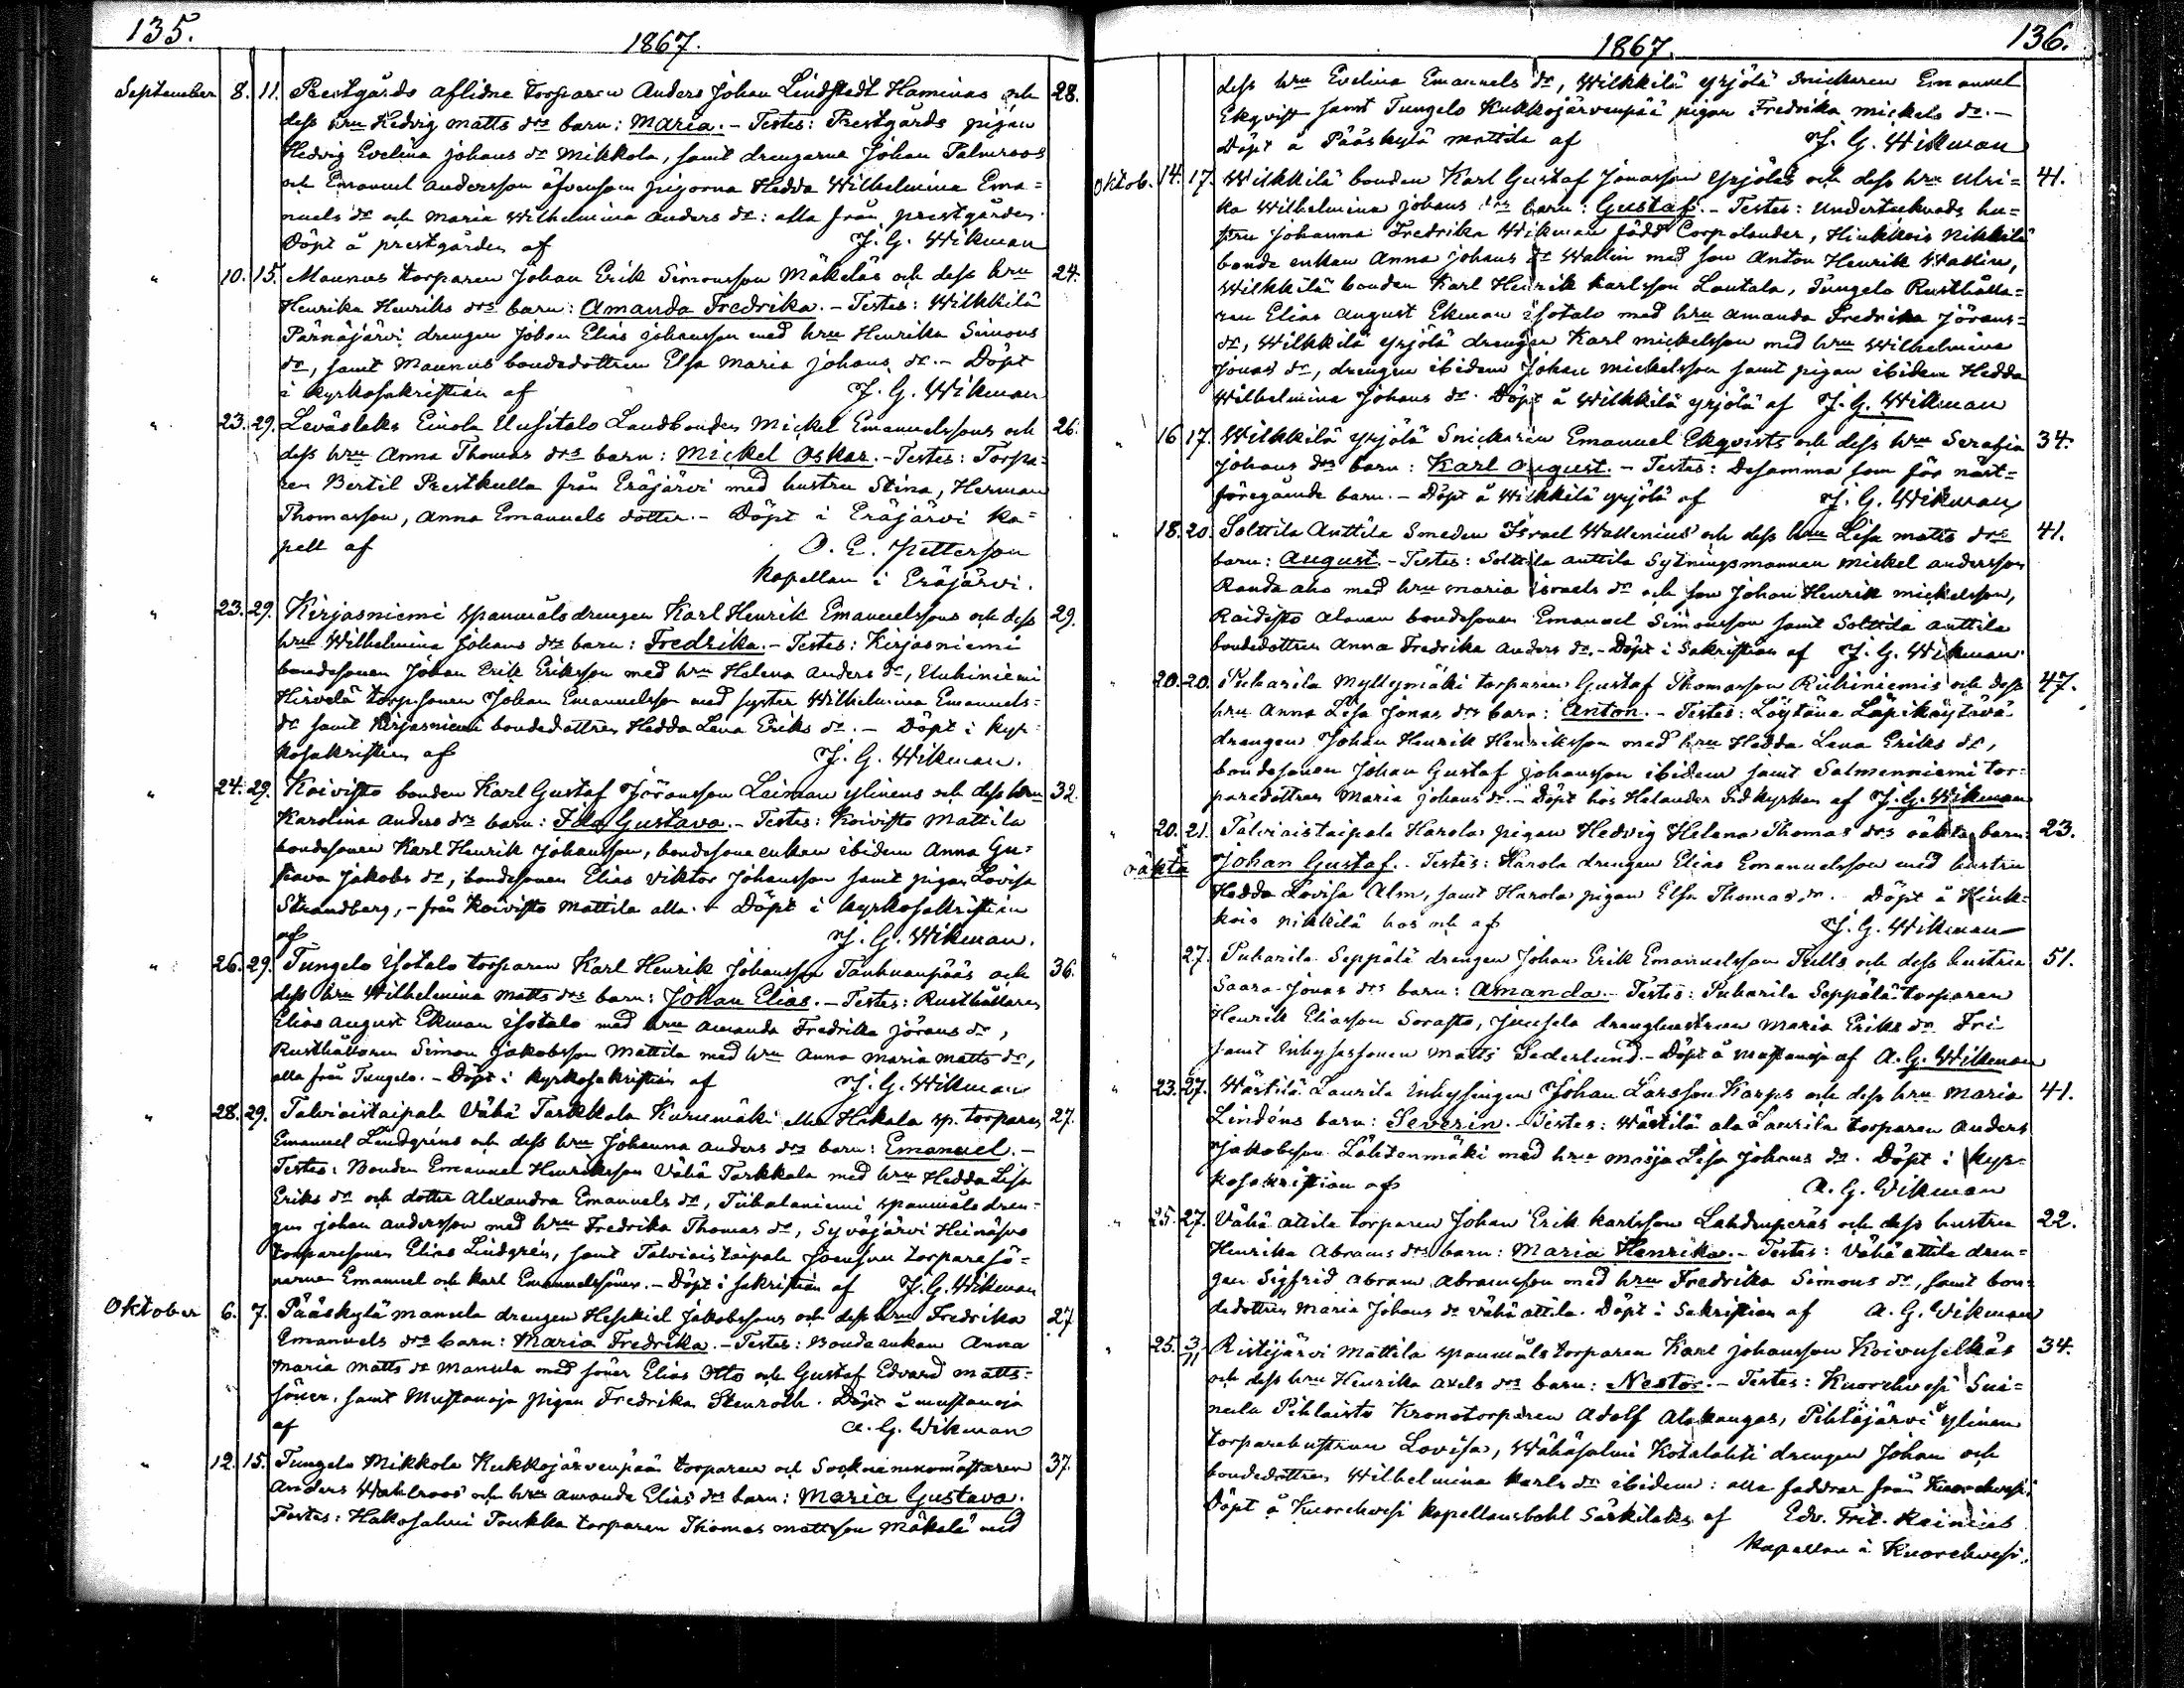 135.
1867.
September 8. 11. Prestgårds aflidne torparen Anders Johan Lindstedt Haminas och 28.
dess hru Hedvig Matts drs barn: Maria. - Testes: Prestgårds pigan
Hedvig Evelina Johans dr Mikkola, samt drengarne Johan Palmroos
och Emanuel Andersson äfvensom pigorna Hedda Wilhelmina Ema=
nuels dr och Maria Wilhelmina Anders dr: alla från prestgården.
Döpt å prestgården af J. G. Wikman
" 10. 15. Maunus torparen Johan Erik Simonsson Mäkeläs och dess hru 24.
Henrika Henriks drs barn: Amanda Fredrika. - Testes: Wilkkilä
Pärnäjärvi drengen Johan Elias Johansson med hru Henrika Simons
dr, samt Maunus bondedottren Elsa Maria Johans dr. - Döpt
i kyrkosakristian af J. G. Wikman
" 23. 29. Leväslaks Einola Uusitalo Landbonden Mickel Emanuelssons och 26.
dess hru Anna Thomas drs barn: Mickel Oskar. - Testes: Torpa=
ren Bertil Prestkulla från Eräjärvi med hustru Stina, Herman
Thomasson, Anna Emanuels dotter. - Döpt i Eräjärvi ka=
pell af O. E. Petterson
Kapellan i Eräjärvi.
" 23. 29. Kirjasniemi spanmålsdrengen Karl Henrik Emanuelssons och dess 29.
hru Wilhelmina Johans drs barn: Fredrika. - Testes: Kirjasniemi
bondesonen Johan Erik Eriksson med hru Helena Anders dr, Uuhiniemi
Hirvelä torpsonen Johan Emanuelsson med syster Wilhelmina Emanuels=
dr samt Kirjasniemi bondedottren Hedda Lena Eriks dr. - Döpt i kyr=
kosakristian af J. G. Wikman.
" 24. 29. Koivisto bonden Karl Gustaf Jöransson Leiman Ylinens och dess hru 32.
Karolina Anders drs barn: Ida Gustava. - Testes: Koivisto Mattila
bondesonen Karl Henrik Johansson, bondesone enkan ibidem Anna Gu=
stava Jakobs dr, bondesonen Elias Viktor Johansson samt pigan Lovisa
Strandberg, - från Koivisto Mattila alla. - Döpt i kyrkosakristian
af J. G. Wikman.
" 26. 29. Tungelo Isotalo torparen Karl Henrik Johansson Tanhuanpääs och 36.
dess hru Wilhelmina Matts drs barn: Johan Elias. - Testes: Rusthållaren
Elias August Ekman Isotalo med hru Amanda Fredrika Jörans dr,
Rusthållaren Simon Jakobsson Mattila med hru Anna Maria Matts dr,
alla från Tungelo. - Döpt i kyrkosakristian af J. G. Wikman
" 28. 29. Talviaistaipale Vähä Tarkkala Kurumäki eller Hakala sp. torparen 27.
Emanuel Lindgréns och dess hru Johanna Anders drs barn: Emanuel. -
Testes: Bonden Emanuel Henriksson Vähä Tarkkala med hru Hedda Lisa
Eriks dr och dotter Alexandra Emanuels dr, Tiihalaniemi spanmåls dren=
gen Johan Andersson med hru Fredrika Thomas dr, Syväjärvi Heinäsuo
torparesonen Elias Lindgrén, samt Talviaistaipale torparesö=
nerna Emanuel och Karl Emanuelssöner. - Döpt i sakristian af J. G. Wikman
Oktober 6. 7. Pääskylä Mansela drengen Hesekiel Jakobssons och dess hru Fredrika 27
Emanuels drs barn: Maria Fredrika. - Testes: Bonde enkan Anna
Maria Matts dr Mansela med söner Elias Otto och Gustaf Edvard Matts=
söner. samt Mustanoja pigan Fredrika Stenroth. Döpt å Mustanoja
af A. G. Wikman
" 12. 15. Tungelo Mikkola Kukkojärvenpää torparen och Socknenumästaren 37.
Anders Wahlroos och hru Amanda Elias drs barn: Maria Gustava.
Testes: Hakosalmi Poukka torparen Thomas Mattsson Mäkelä med
136.
1867.
dess hru Evelina Emanuels dr, Wilkkilä Yrjölä snickaren Emanuel
Ekqvist samt Tungelo Kukkojärvenpää pigan Fredrika Mickels dr. -
Döpt å Pääskylä Mattila af J. G. Wikman
Oktob. 14. 17. Wilkkilä bonden Karl Gustaf Jonasson Yrjöläs och dess hru Ulri= 41.
ka Wilhelmina Johans drs barn: Gustaf. - Testes: Undertecknads hu=
stru Johanna Fredrika Wikman född Corpolander, Hinkkois Nikkilä
bonde enkan Anna Johans dr Wallin med son Anton Henrik Wallin,
Wilkkilä bonden Karl Henrik Karlsson Lautala, Tungelo Rusthålla=
ren Elias August Ekman Isotalo med hru Amanda Fredrika Jörans=
dr, Wilkkilä Yrjölä drengen Karl Mickelsson med hru Wilhelmina
Jonas dr, drengen ibidem Johan Mickelsson samt pigan ibidem Hedda
Wilhelmina Johans dr. Döpt å Wilkkilä Yrjölä af J. G. Wikman
" 16 17. Wilkkilä Yrjölä Snickaren Emanuel Ekqvists och dess hru Serafia 34.
Johans drs barn: Karl August. - Testes: Desamma som för näst=
föregående barn. - Döpt å Wilkkilä Yrjölä af J. G. Wikman
" 18. 20. Solttila Anttila Smeden Israel Wallenius och dess hru Lisa Matts drs 41.
barn: August. - Testes: Solttila Anttila Sytningsmannen Mickel Andersson
Randa aho med hru Maria Israels dr och son Johan Henrik Mickelsson,
Raidisto Alanen bondesonen Emanuel Simonsson samt Solttila Anttila
bondedottren Anna Fredrika Anders dr. - Döpt i Sakristian af J. G. Wikman
" 20. 20. Puharila Myllymäki torparen Gustaf Thomasson Riihiniemis och dess 47.
hru Anna Lisa Jonas drs barn: Anton. - Testes: Löytäne Läpikäytävä
drengen Johan Henrik Henriksson med hru Hedda Lena Eriks dr,
bondesonen Johan Gustaf Johansson ibidem samt Salmenniemi tor=
paredottren Maria Johans dr. - Döpt hos Helander vid kyrkan af J. G. Wikman
" 20. 21. Talviaistaipale Harola pigan Hedvig Helena Thomas drs oäkta barn: 23.
oäkta Johan Gustaf. - Testes: Harola drengen Elias Emanuelsson med hustru
Hedda Lovisa Alm, samt Harola pigan Elsa Thomas dr. Döpt å Hink=
kois Nikkilä hos och af J. G. Wikman
" 27. Puharila Seppälä drengen Johan Erik Emanuelsson Fulls och dess hustru 51.
Saara Jonas drs barn: Amanda. - Testes: Puharila Seppälä torparen
Henrik Eliasson Sorasto, Juusela drenghustrun Maria Eriks dr Fri
samt Inhysessonen Matts Sederlund. - Döpt å Mustanoja af A. G. Wikman
" 23. 27. Wästilä Laurila Inhysingen Johan Larsson Karps och dess hru Maria 41.
Lindéns barn: Severin. - Testes: Wästilä ala Laurila torparen Anders
Jakobsson Lähtenmäki med hru Maija Lisa Johans dr. Döpt i kyr=
kosakristian af A. G. Wikman
" 25. 27. Vähä Attila torparen Johan Erik Karlsson Lahdenperäs och dess hustru 22.
Henrika Abrams drs barn: Maria Henrika. - Testes: Vähä Attila dren=
gen Sigfrid Abram Abramsson med hru Fredrika Simons dr, samt bon=
dedottren Maria Johans dr Vähä Attila. Döpt i Sakristian af A. G. Wikman
" 25. 3/11 Ristijärvi Mattila spanmålstorparen Karl Johansson Koivuselkäs 34.
och dess hru Henrika Axels drs barn: Nestor. - Testes: Kuorehvesi Sui=
nula Pihlaisto Kronotorparen Adolf Alakangas, Pihlajärvi Ylinen
torparehustrun Lovisa, Wähäsalmi Kotalahti drengen Johan och
bondedottren Wilhelmina Karls dr ibidem: alla faddrar från Kuorehvesi.
Döpt å Kuorehvesi kapellansbohl Särkilaks af Edv. Frit. Kainius
Kapellan i Kuorehvesi.